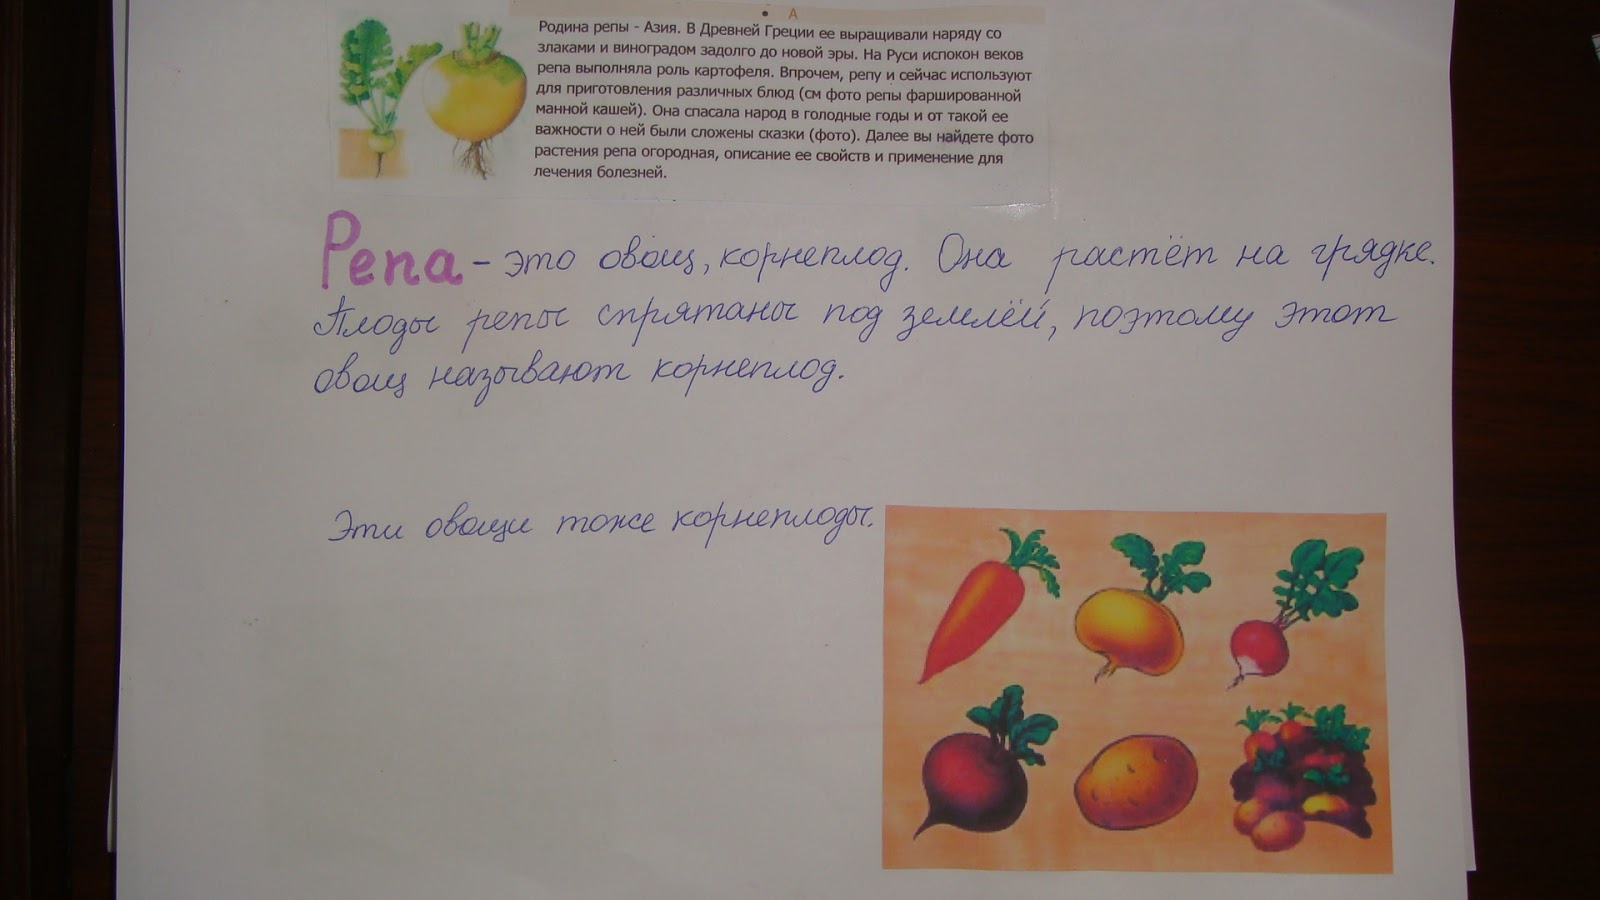 А
Родина репы - Азия. В Древней Греции ее выращивали наряду со
злаками и виноградом задолго до новой эры. На Руси испокон веков
репа выполняла роль картофеля. Впрочем, репу и сейчас используют
для приготовления различных блюд (см фото репы фаршированной
манной кашей). Она спасала народ в голодные годы и от такой ее
важности о ней были сложены сказки (фото). Далее вы найдете фото
растения репа огородная, описание ее свойств и применение для
лечения болезней.
Репа - это овощ, корнеплод. Она растёт на грядке.
Плоды репы спрятаны под землёй, поэтому этот
овощ называют корнеплод.
Эти овощи тоже корнеплоды.